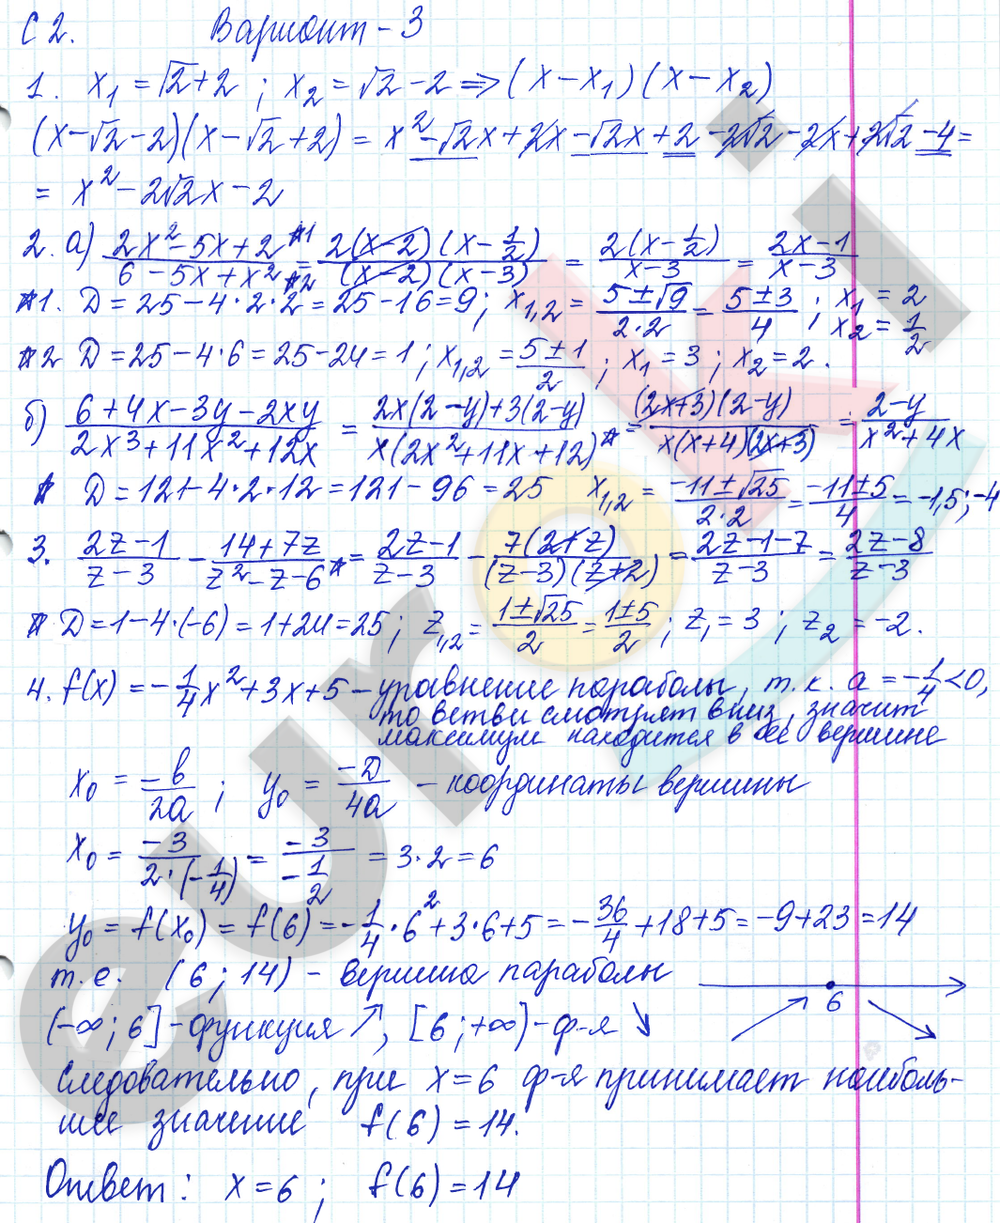 С 2. Вариант - 3
1. x₁ = √2 + 2 ; x₂ = √2 - 2 ⇒ (x - x₁)(x - x₂)
(x - √2 - 2)(x - √2 + 2) = x² - √2x + 2x - √2x + 2 - 2√2 - 2x + 2√2 - 4 =
= x² - 2√2x - 2
2. а) (2x² - 5x + 2 *1)/(6 - 5x + x² *2) = (2(x - 2)(x - 1/2))/((x - 2)(x - 3)) = (2(x - 1/2))/(x - 3) = (2x - 1)/(x - 3)
*1. D = 25 - 4·2·2 = 25 - 16 = 9 ; x₁,₂ = (5 ± √9)/(2·2) = (5 ± 3)/4 ; x₁ = 2 x₂ = 1/2
*2 D = 25 - 4·6 = 25 - 24 = 1 ; x₁,₂ = (5 ± 1)/2 ; x₁ = 3 ; x₂ = 2 .
б) (6 + 4x - 3y - 2xy)/(2x³ + 11x² + 12x) = (2x(2 - y) + 3(2 - y))/(x(2x² + 11x + 12)*) = ((2x + 3)(2 - y))/(x(x + 4)(2x + 3)) = (2 - y)/(x² + 4x)
* D = 121 - 4·2·12 = 121 - 96 = 25 x₁,₂ = (-11 ± √25)/(2·2) = (-11 ± 5)/4 = -1,5 ; -4
3. (2z - 1)/(z - 3) - (14 + 7z)/(z² - z - 6 *) = (2z - 1)/(z - 3) - (7(2 + z))/((z - 3)(z + 2)) = (2z - 1 - 7)/(z - 3) = (2z - 8)/(z - 3)
* D = 1 - 4·(-6) = 1 + 24 = 25 ; z₁,₂ = (1 ± √25)/2 = (1 ± 5)/2 ; z₁ = 3 ; z₂ = -2 .
4. f(x) = -1/4 x² + 3x + 5 - уравнение параболы, т.к. a = -1/4 < 0,
то ветви смотрят вниз, значит
максимум находится в её вершине
x₀ = -b/2a ; y₀ = -D/4a - координаты вершины
x₀ = -3/(2·(-1/4)) = -3/(-1/2) = 3·2 = 6
y₀ = f(x₀) = f(6) = -1/4 · 6² + 3·6 + 5 = -36/4 + 18 + 5 = -9 + 23 = 14
т.е. (6 ; 14) - вершина параболы
6
(-∞ ; 6] - функция ↗, [6 ; +∞) - ф-я ↘
Следовательно, при x = 6 ф-я принимает наиболь-
шее значение f(6) = 14.
Ответ: x = 6 ; f(6) = 14
euroki